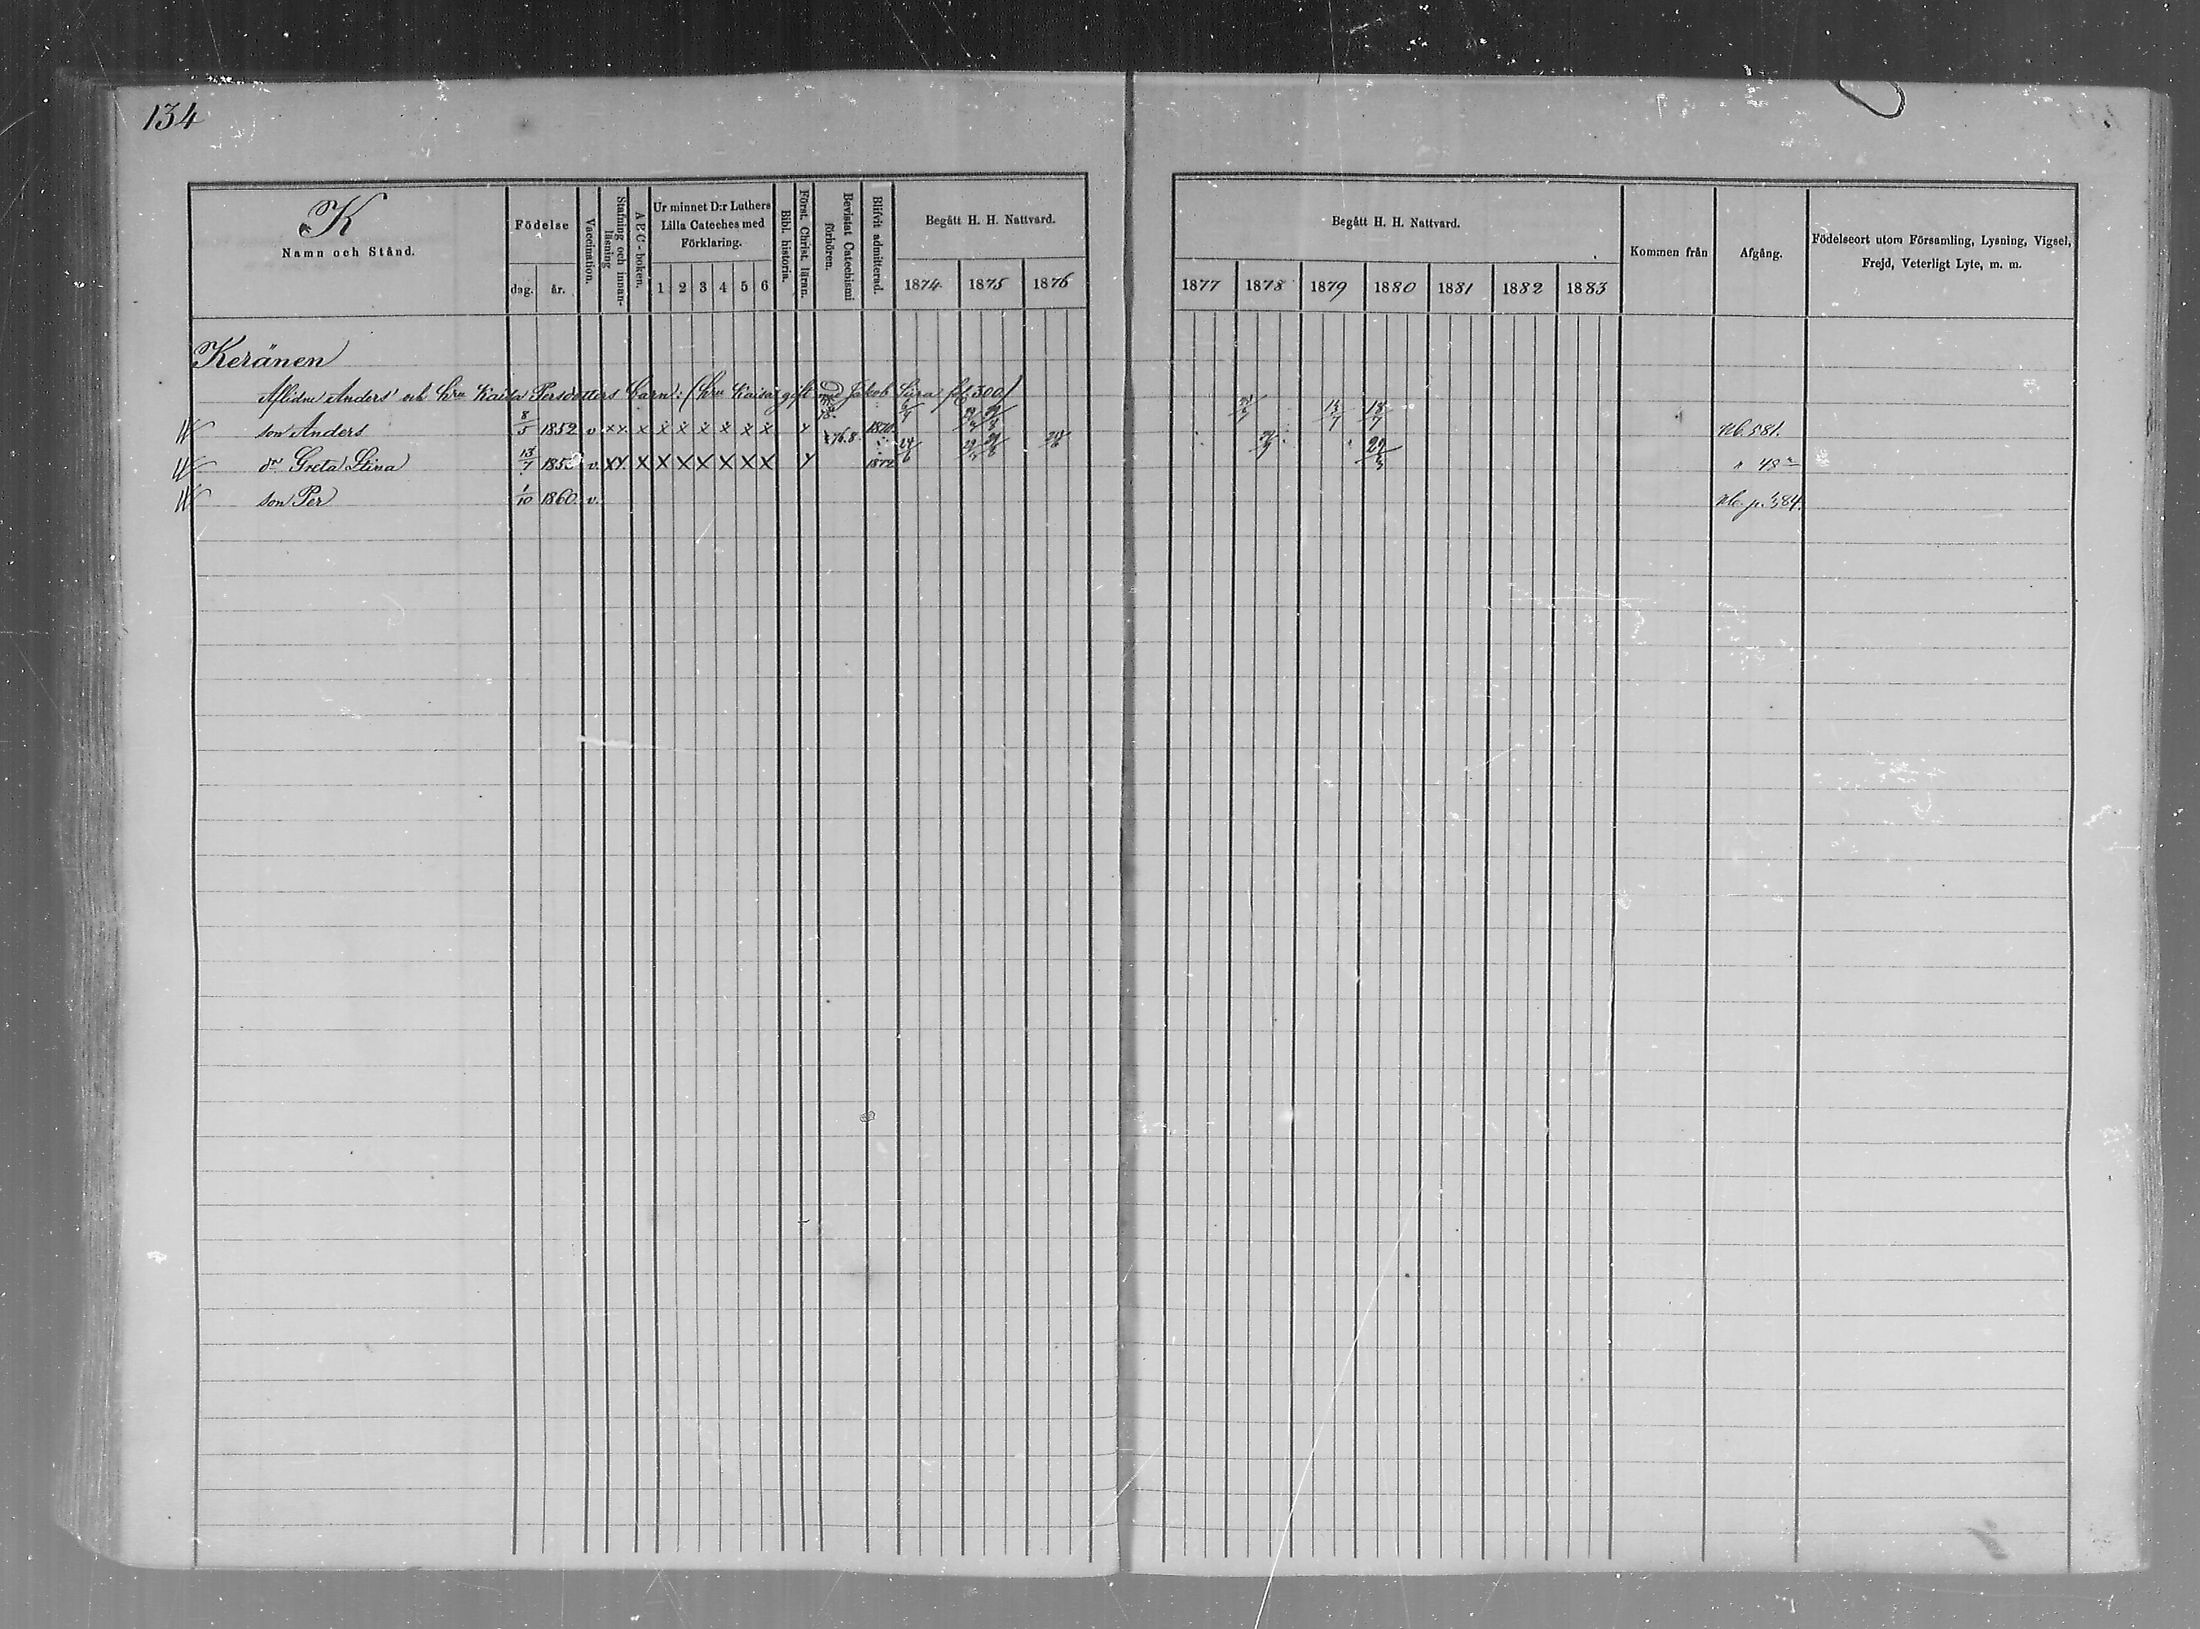 134
K
Namn och Stånd.
Födelse
dag. år.
Vaccination.
Stafning och innanläsning
ABC-boken.
Ur minnet D:r Luthers Lilla Cateches med Förklaring.
1 2 3 4 5 6
Bibl. historia.
Först. Christ. läran.
Bevistat Catechismi förhören.
Blifvit admitterad.
Begått H. H. Nattvard.
1874 1875 1876
Begått H. H. Nattvard.
1877 1878 1879 1880 1881 1882 1883
Kommen från
Afgång.
Födelseort utom Församling, Lysning, Vigsel, Frejd, Veterligt Lyte, m. m.
Keränen
Aflidne Anders och hru Kaisa Persdotters barn: (hru Kaisa gift med Jakob fol 300)
son Anders 8/5 1852 v xx x x x x x x x x 1870 13/7 18/7 581.
dr Greta Stina 13/7 v. xx x x x x x x x x 1872 24/6 " 48
son Per 1/10 1860 v. p. 584.